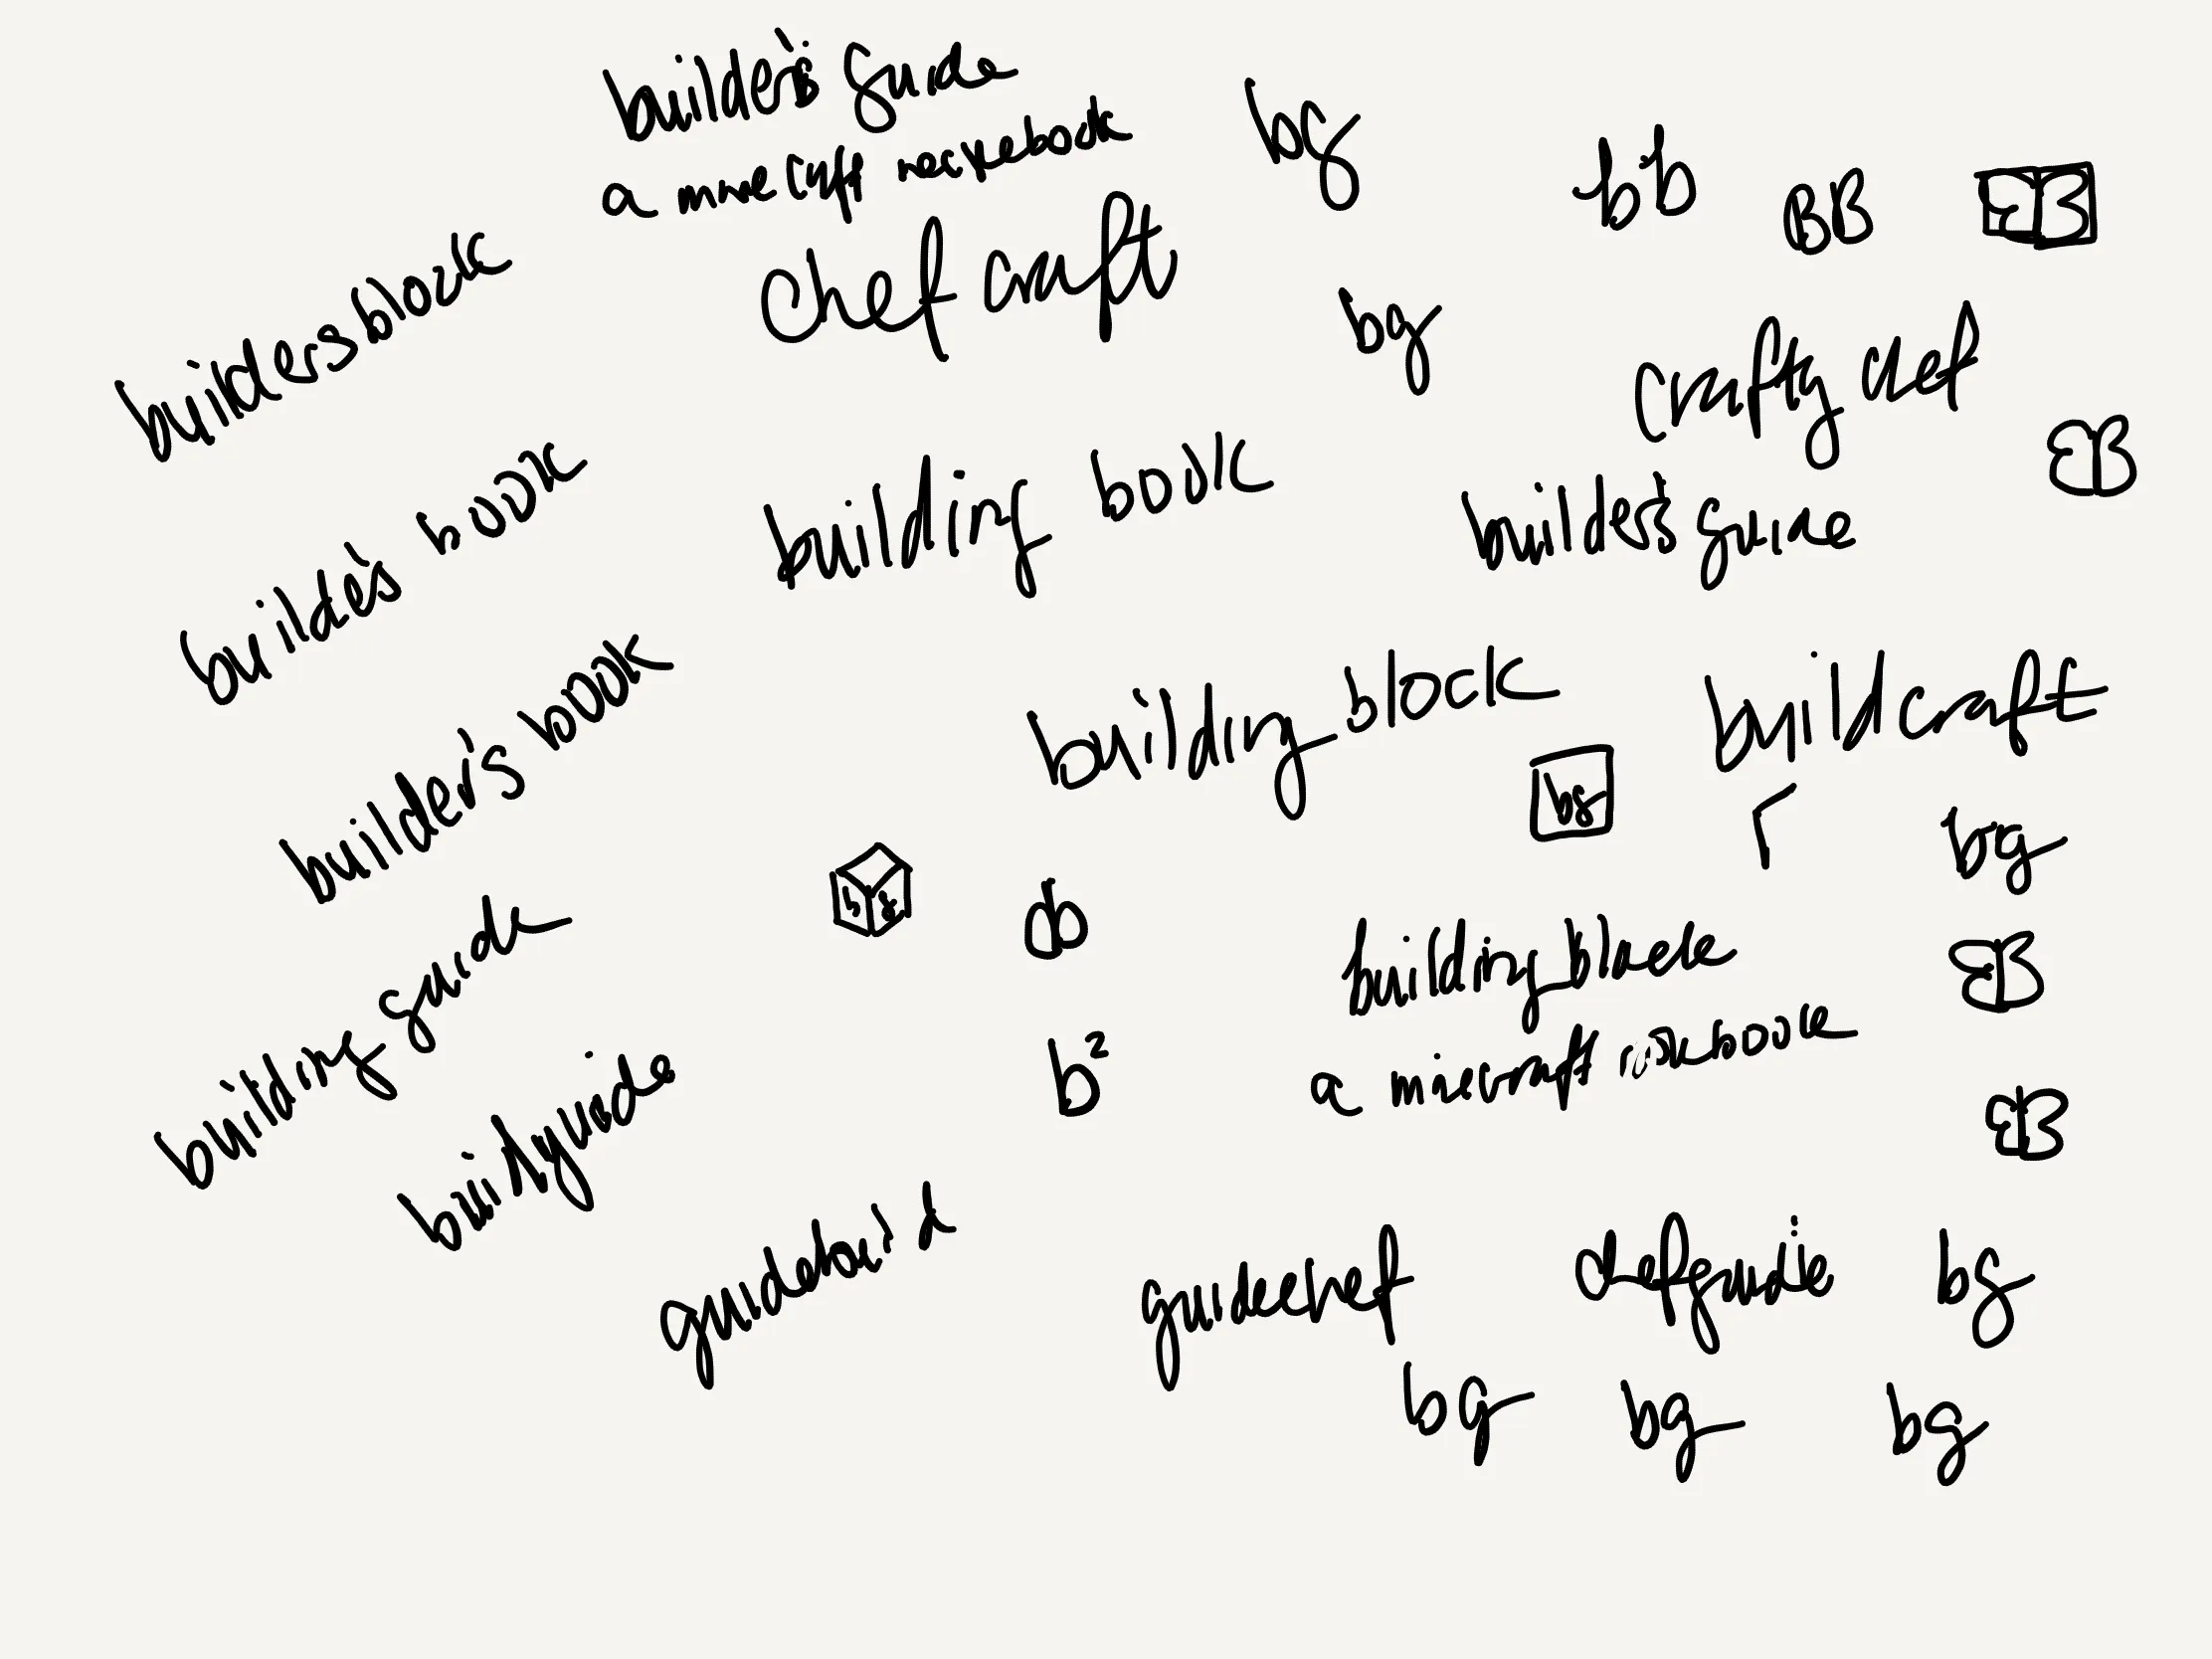 builder's guide
a minecraft recipebook
bg
bb
BB
BB
buildersblock
chef craft
bg
crafty chef
BB
builder's book
building book
builder's guide
builder's book
building block
buildcraft
bg
bg
bg
building guide
bb
building block
BB
a minecraft
b²
BB
buildguide
guidebuild
guidechef
chefguide
bg
bg
bg
bg